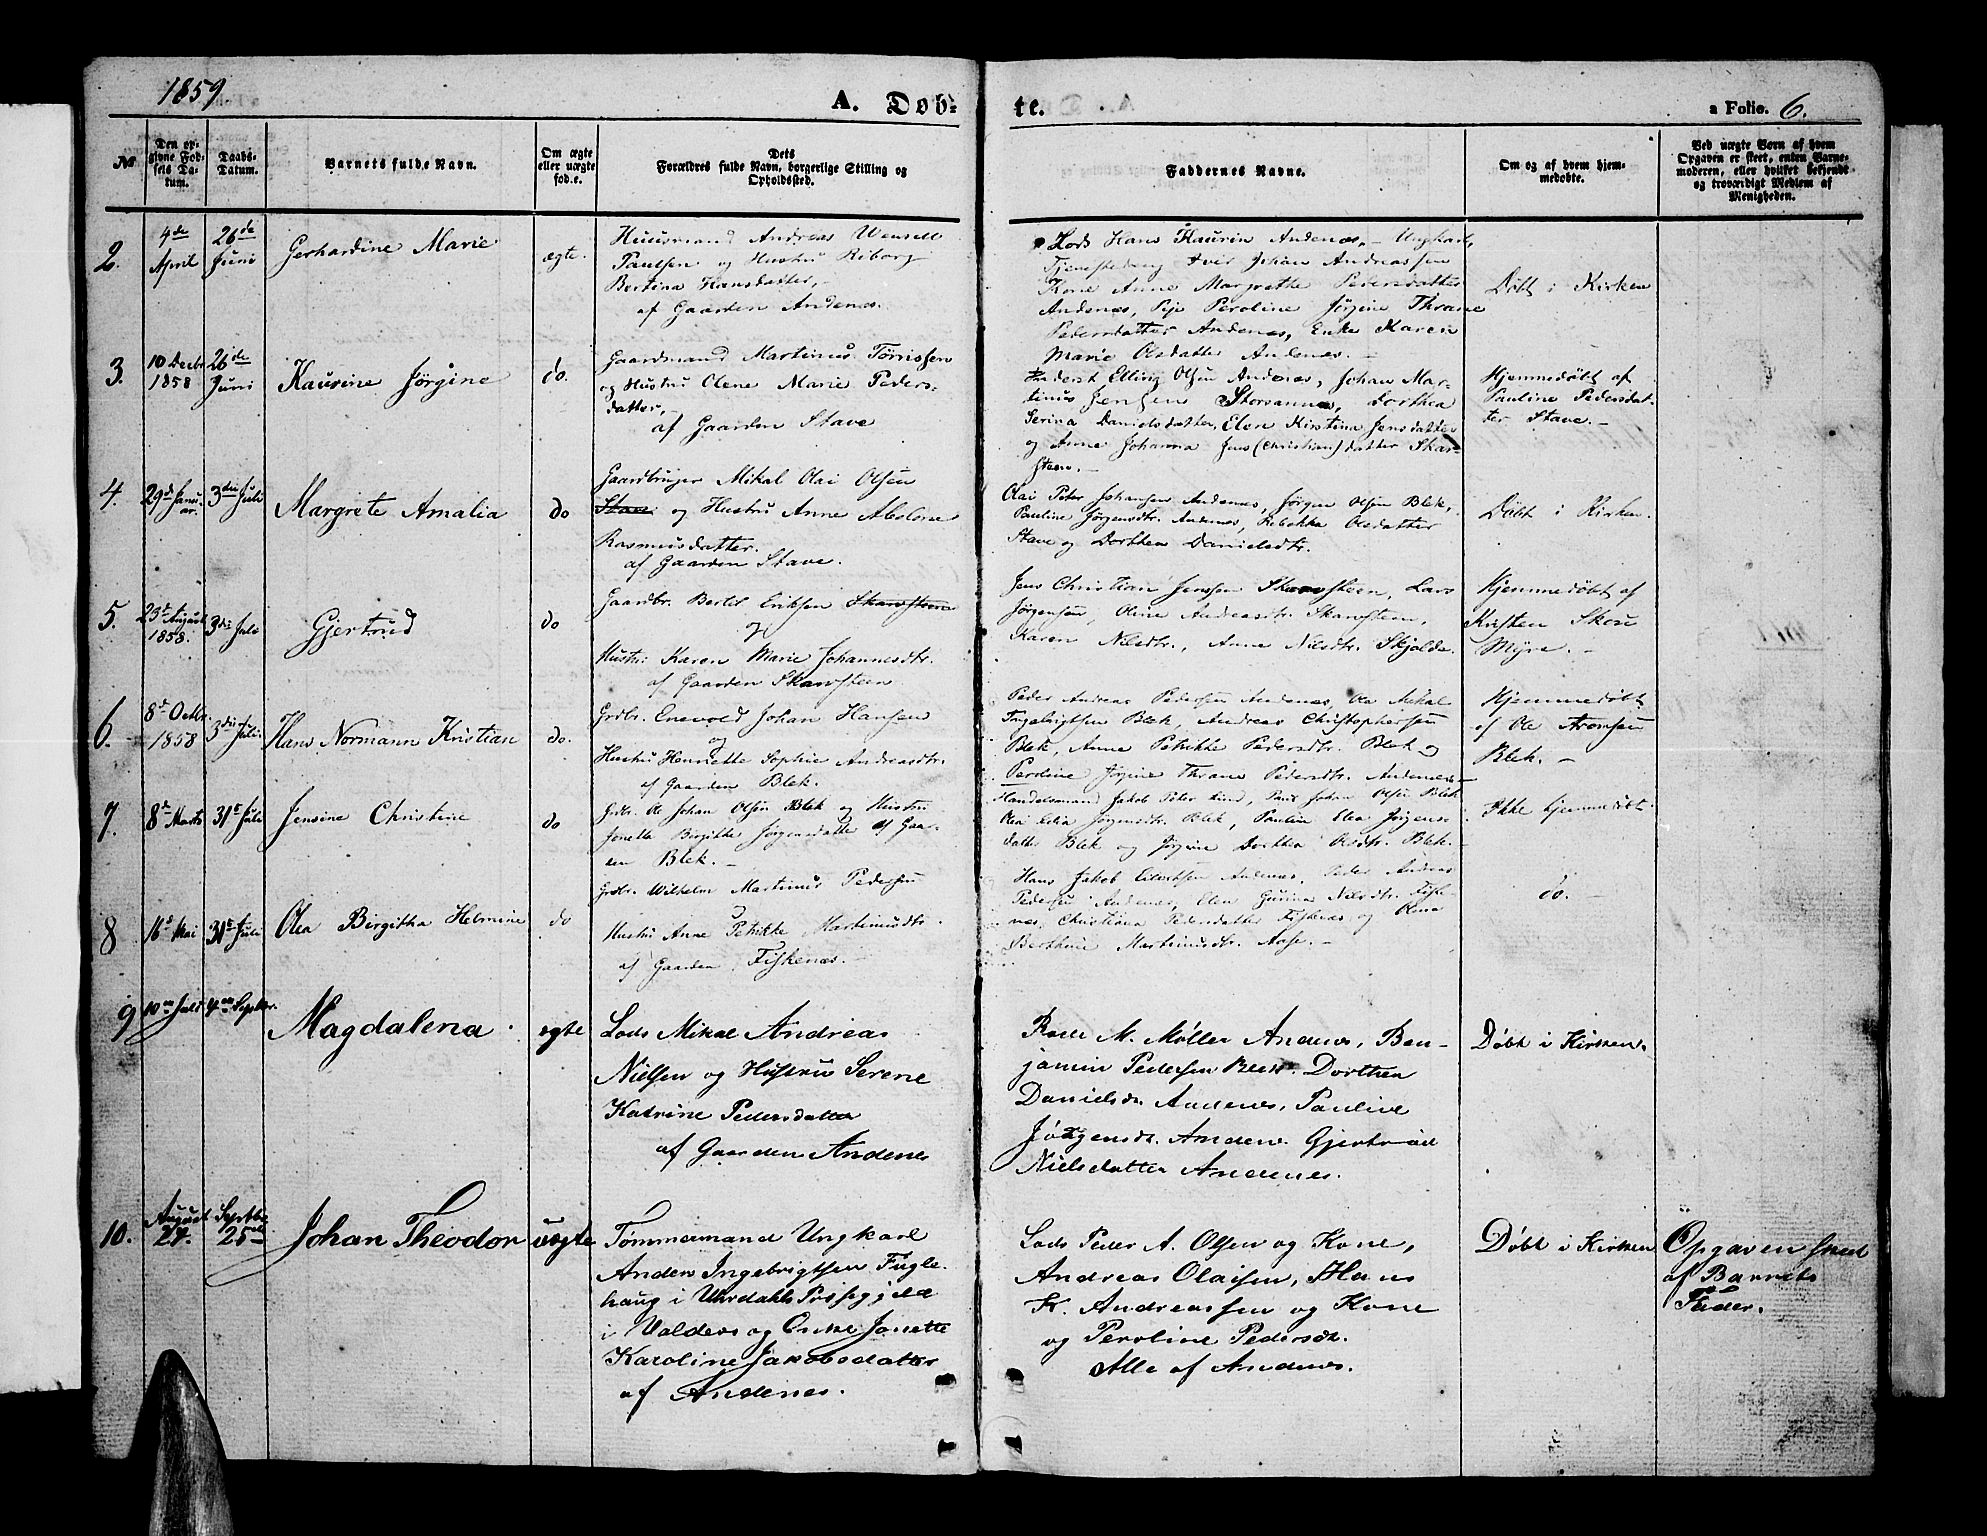 1859
A. Døb-
te.
a Folio. 6.
№
Den op-
givne Fød-
sels Da-
tum.
Daabs-
Datum.
Barnets fulde Navn.
Om ægte
eller uægte
fød.e.
Dets
Forældres fulde Navn, borgerlige Stilling og
Opholdssted.
Faddernes Navne.
Om og af hvem hjem-
medøbte.
Ved uægte Børn af hvem
Opgaven er skeet, enten Barne-
moderen, eller hvilket bekjendt
og troværdigt Medlem af
Menigheden.
2.
4de
April
26de
Juni
Gerhardine Marie
ægte.
Huusmand Andreas
Paulsen og Hustru Riborg
Bertina Hansdatter,
af Gaarden Andenæs.
Lods Hans Kaurin Andenæs, Ungkarl,
Johan Andreassen
Kone Anne Margrethe Pedersdatter
Andenæs, Pige Peroline Jørgine Thrane
Pedersdatter Andenæs, Enke Karen
Marie Olsdatter Andenæs. -
Døbt i Kirken
3.
10 Decbr
1858
26de
Juni
Kaurine Jørgine
do.
Gaardmand Martinus Tørrissen
og Hustru Olene Marie Peders-
datter,
af Gaarden Stave
Elling Olsen Andenæs, Johan Mar-
tinus Jensen Dorthea
Serina Danielsdatter, Elen Kirstina Jensdatter
og Anne Johanna Jens (Christian) datter Skar-
steen. -
Hjemmedøbt af
Pauline Pedersdat-
ter Stave. -
4.
29d Janu-
ar.
3die Juli
Margrete Amalia
do
Gaardbruger Mikal Olai Olsen
Stave og Hustru Anne Abelone
Rasmusdatter.
af Gaarden Stave.
Olai Peter Johansen Andenæs, Jørgen Olsen Blek,
Pauline Jørgensdtr. Andenæs, Rebekka Olsdatter
Stave og Dorthea Danielsdtr.
Døbt i Kirken.
5.
23d August
1858.
3die Juli
Gjertrud
do
Gaardbr. Bertel Eriksen Skarsteen
og
Hustru Karen Marie Johannesdtr.
af Gaarden Skarsteen
Jens Christian Jenssen Skarsteen, Lars
Jørgensen, Oline Andreasdtr. Skarsteen,
Karen Nilsdtr., Anne Nilsdtr. Skjolde.
Hjemmedøbt af
Kristen Skou
Myre. -
6.
8d Octbr.
1858
3die Juli
Hans Normann Kristian
do.
Grdbr. Enevold Johan Hansen
og
Hustru Henriette Sophie Andreasdtr.
af Gaarden Blek.
Peder Andreas Pedersen Andenæs, Ole Mikal
Ingebrigtsen Blek, Andreas Christophersen
Blek, Anne Petrikke Pedersdtr. Blek og
Peroline Jørgine Thrane Pedersdtr. Andenæs
Hjemmedøbt
af Ole Aronsen
Blek. -
7.
8d Marts
31te Juli
Jensine Christine
do
Grdbr. Ole Johan Olsen Blek og Hustru
Jonette Birgitte Jørgensdatter af Gaar-
den Blek. -
Handelsmand Jakob Peter Lind, Paul Johan Olsen Blek
Olea Jørgensdtr. Blek, Pauline Elea Jørgens-
datter Blek og Jørgine Dorthea Olsdtr. Blek. -
Ikke hjemmedøbt.
8
16d Mai
31te Juli
Olea Birgitha Helmine
do
Grdbr. Wilhelm Martinus Pedersen
og
Hustru Anne Petrikke Martinusdtr.
af Gaarden Fiskenæs. -
Hans Jakob Eilertsen Andenæs, Peder Andreas
Pedersen Andenæs, Elen Gurina Nilsdtr. Fiske-
næs, Christiana Pedersdatter Fiskenæs og Olena
Berthine Martinusdtr. Aase. -
do. -
9
10de Juli
4de Septbr.
Magdalena
egte
Lods Mikal Andreas
Nielsen og Hustru Serene
Katrine Pedersdatter
af Gaarden Andenes
M. Møller Andenes, Ben-
jamin Pedersen Blek. Dorthea
Danielsdr. Andenes, Pauline
Jørgensdr. Andenes. Gjertrud
Nielsdatter Andenes.
Døbt i Kirken.
10.
August
24.
Septbr
25de
Johan Theodor
uegte
Tømmermand Ungkarl
Anders Ingebrigtsen Fugle-
haug i Præstegjeld
i Valders og Enke Jonette
Karoline Jakobsdatter
af Andenes.
Lods Peder A. Olsen og Kone,
Andreas Olaisen, Hans
K. Andreassen og Kone
og Peroline Pedersdr.
Alle af Andenes.
Døbt i Kirken
Opgaven skeet
af Barnets
Fader.